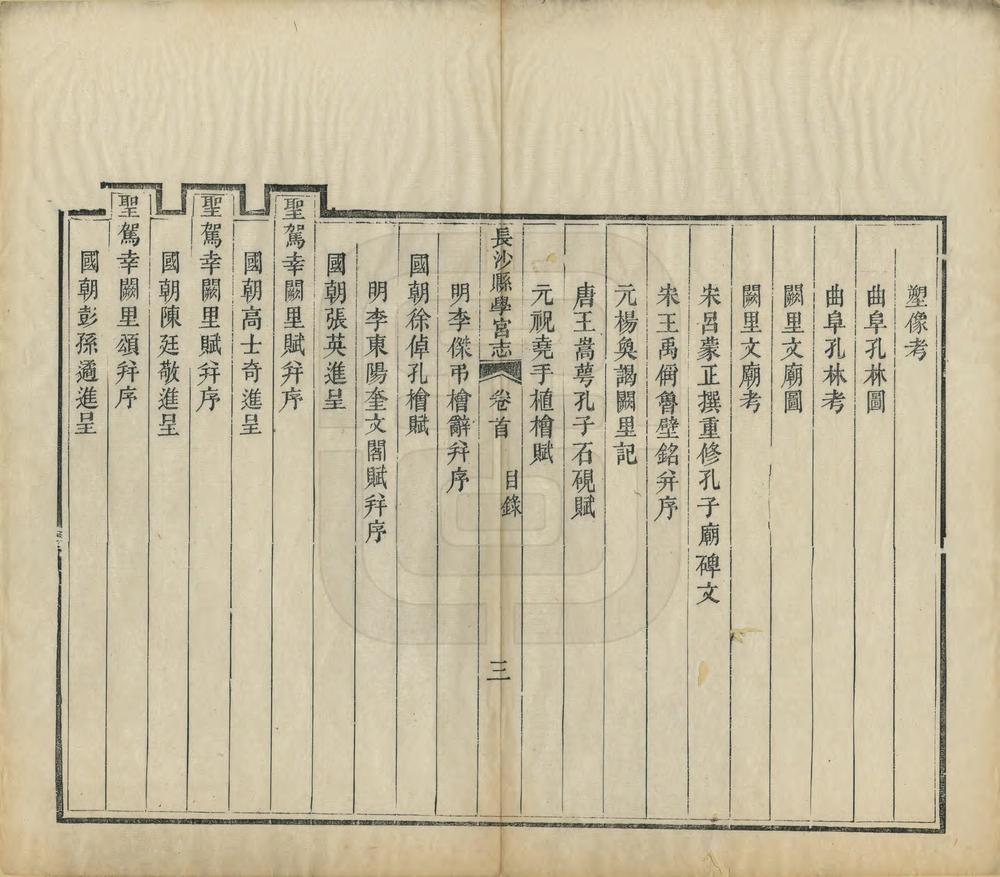 塑像考
曲阜孔林圖
曲阜孔林考
闕里文廟圖
闕里文廟考
宋呂蒙正撰重修孔子廟碑文
宋王禹偁魯壁銘并序
元楊奐謁闕里記
唐王嵩萼孔子石硯賦
元祝堯手植檜賦
長沙縣學宮志 卷首 目錄 三
明李傑弔檜辭并序
國朝徐倬孔檜賦
明李東陽奎文閣賦并序
國朝張英進呈
聖駕幸闕里賦并序
國朝高士奇進呈
聖駕幸闕里賦并序
國朝陳廷敬進呈
聖駕幸闕里頌并序
國朝彭孫遹進呈